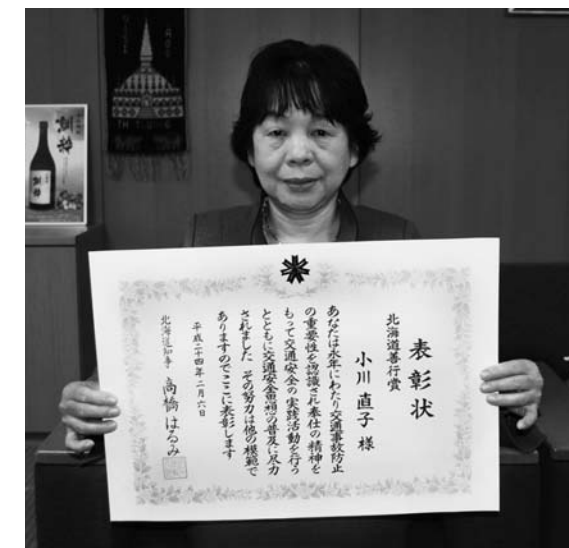 表彰状
北海道善行賞
小川 直子 様
あなたは永年にわたり交通事故防止
の重要性を認識され奉仕の精神を
もって交通安全の実践活動を行う
とともに交通安全思想の普及に尽力
されました その努力は他の模範で
ありますのでここに表彰します
平成二十四年二月六日
北海道知事 高橋はるみ